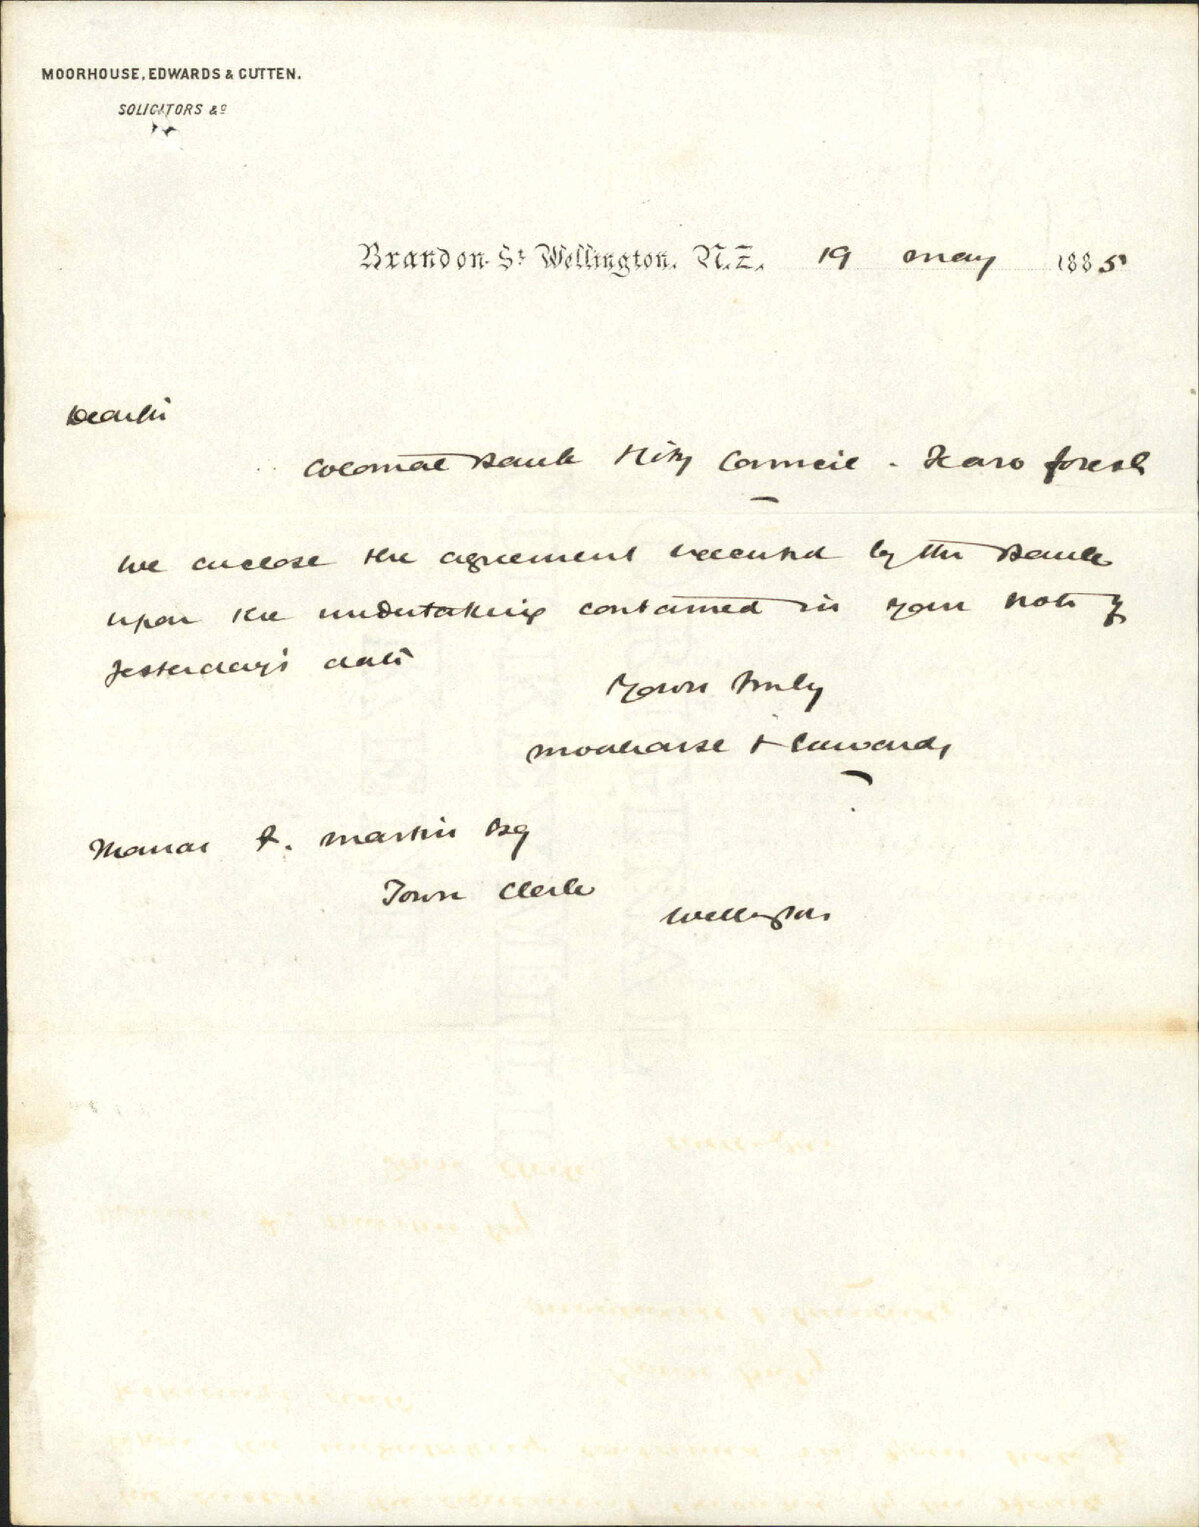 MOORHOUSE, EDWARDS & CUTTEN.
SOLICITORS &c
Brandon St Wellington. N.Z. 19 May 1885
Dear Sir
Colonial Bank City Council. Karo forest
We enclose the agreement executed by the Bank
upon the undertaking contained in your note of
yesterday's date
Yours truly
Moorhouse & Edwards
Martin Esq
Town Clerk
Wellington